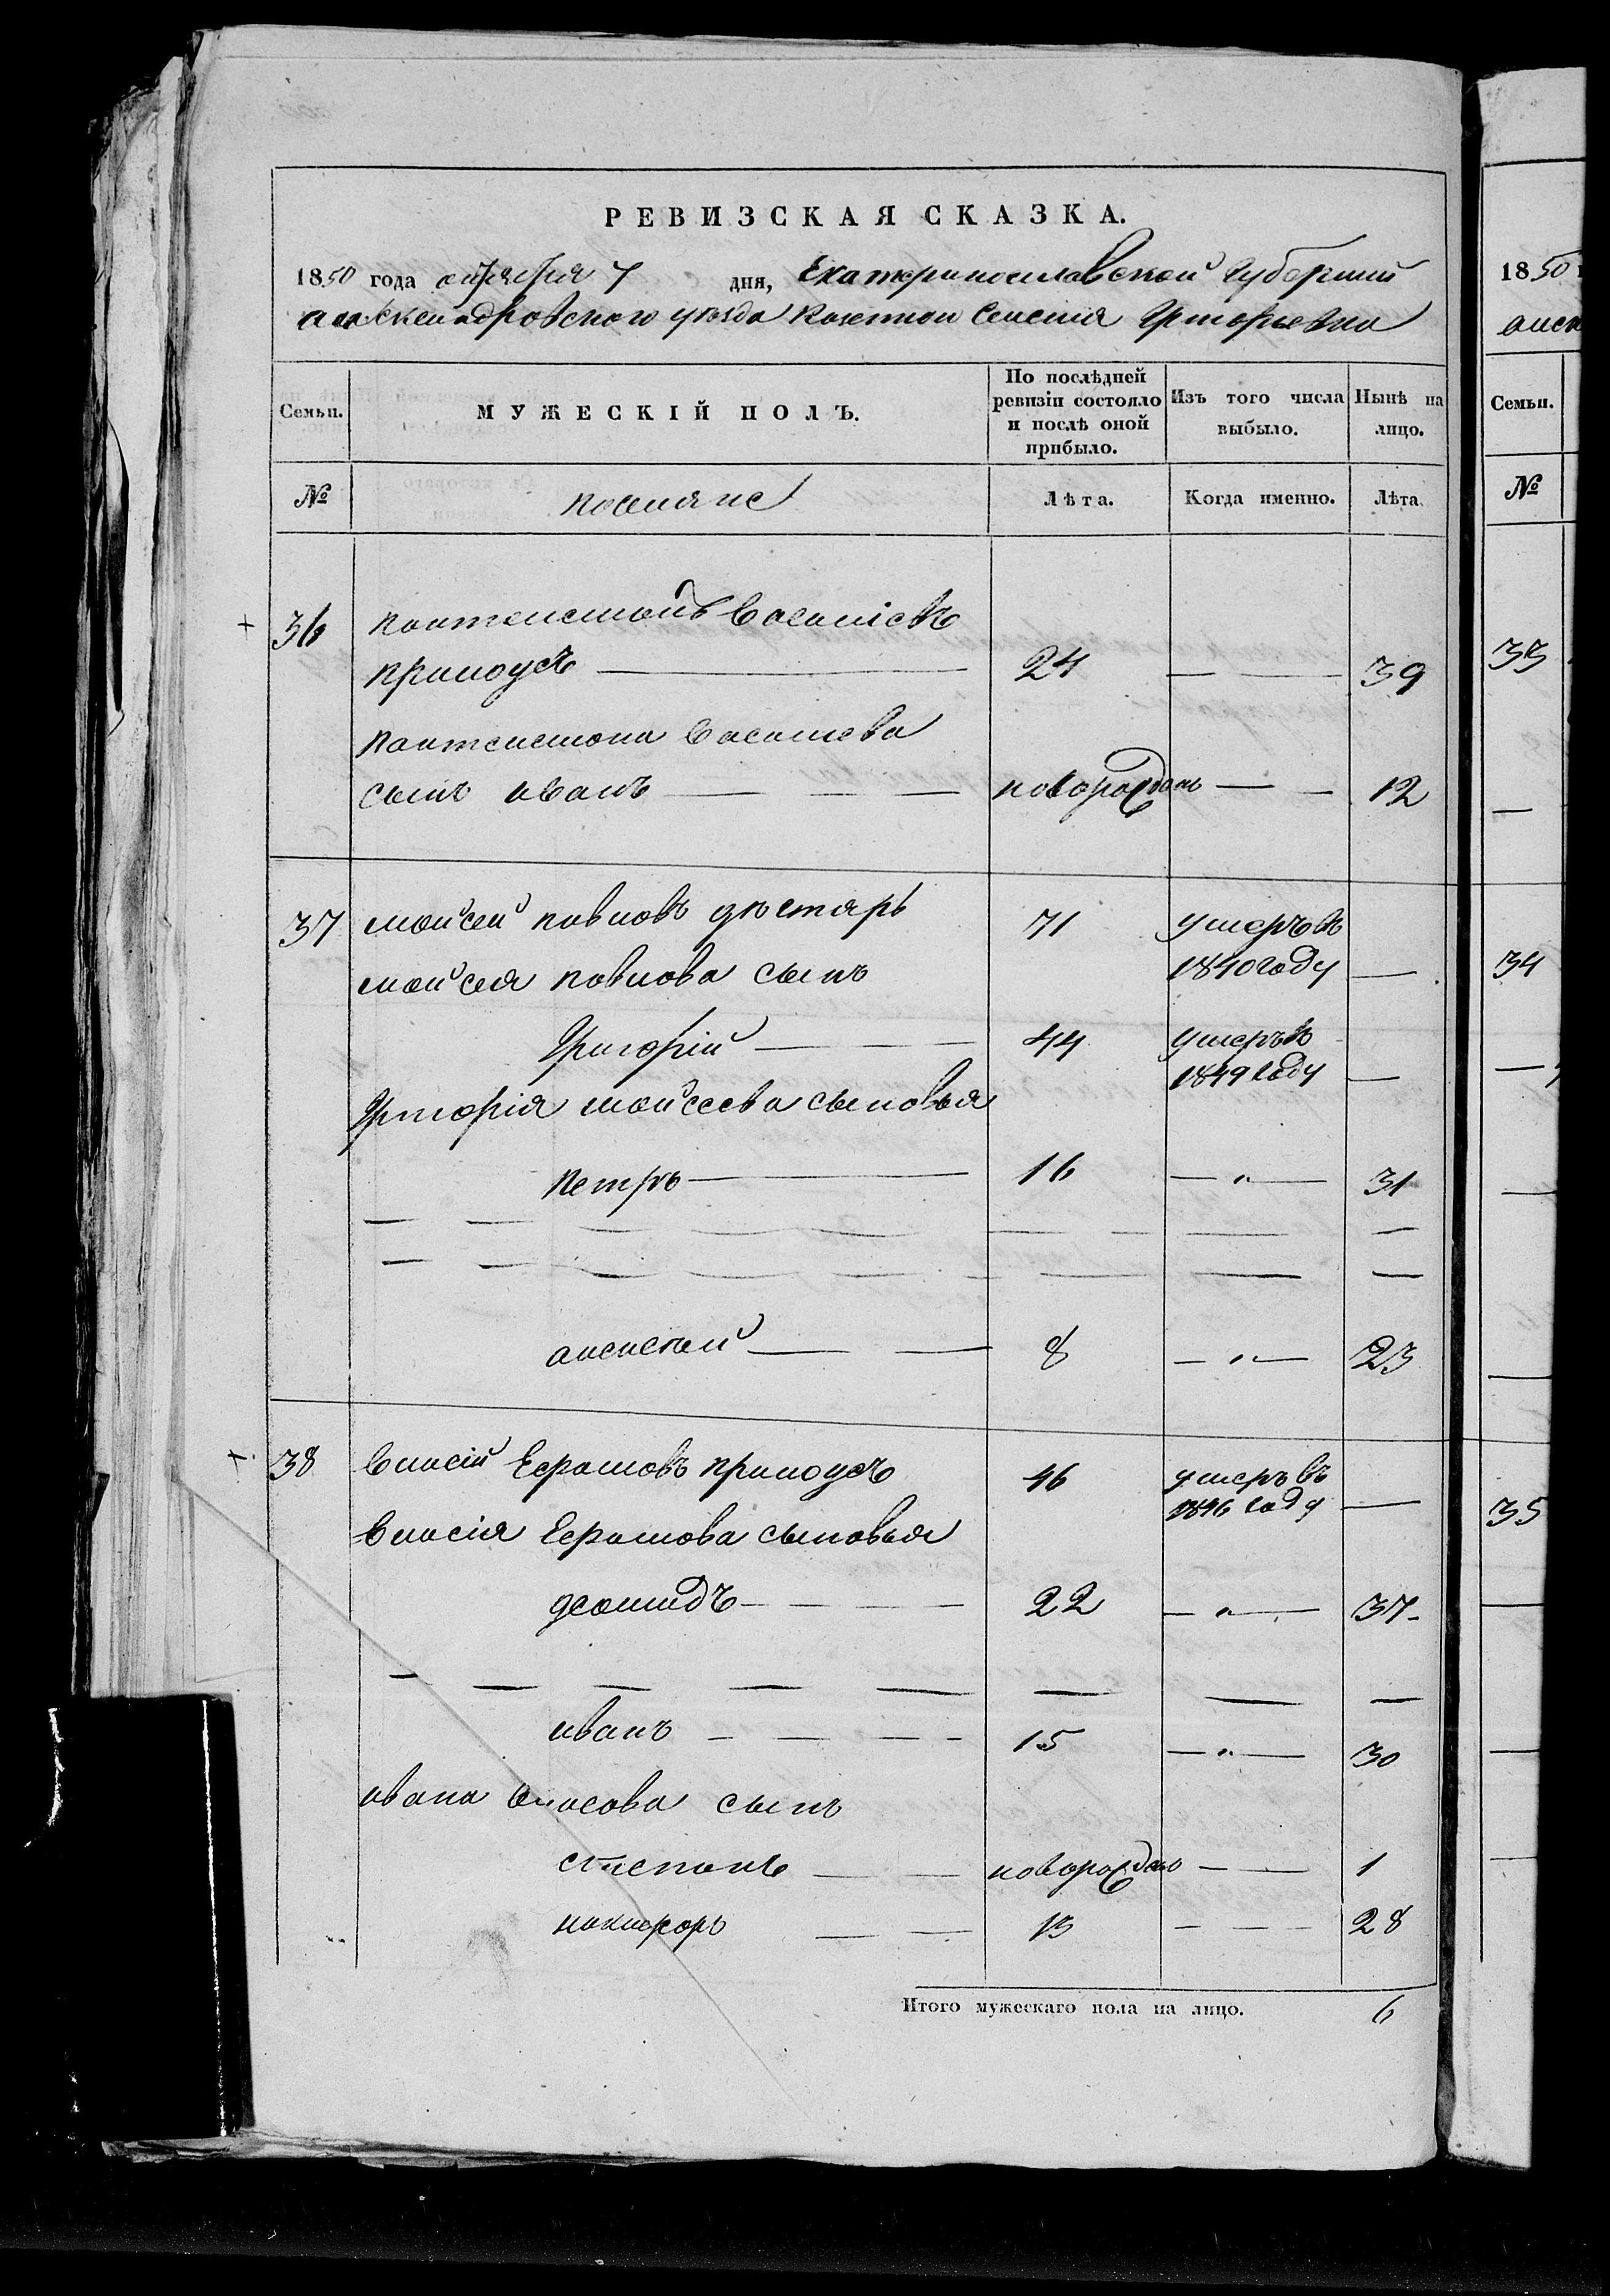 РЕВИЗСКАЯ СКАЗКА.
1850 года октября 7 дня, Екатеринославской Губернии
александровского уезда казенного селения Григорьевки
Семьи. МУЖЕСКІЙ ПОЛЪ. По послѣдней ревизіи состояло и послѣ оной прибыло. Изъ того числа выбыло. Нынѣ на лицо.
№ поселяне Лѣта. Когда именно. Лѣта.
36 пантелемонъ Васильевъ
24 — 39
пантелемона Васильева
сынъ иванъ — новорожданъ — 12
37 мойсей павловъ 71 умеръ въ
мойсея павлова сынъ 1840 году —
Григорій — 44 умеръ въ
1849 году —
Григорія мойсеева сыновья
петръ — 16 — " — 31
алексей — 8 — " — 23
38 Власій 46 умеръ въ
1846 году —
Власія сыновья
деомидъ — 22 — " — 37
иванъ — 15 — " — 30
ивана Власова сынъ
степанъ — новорожданъ — 1
никифоръ — 13 — 28
Итого мужескаго пола на лицо. 6
1850
Семьи.
№
33
34
35